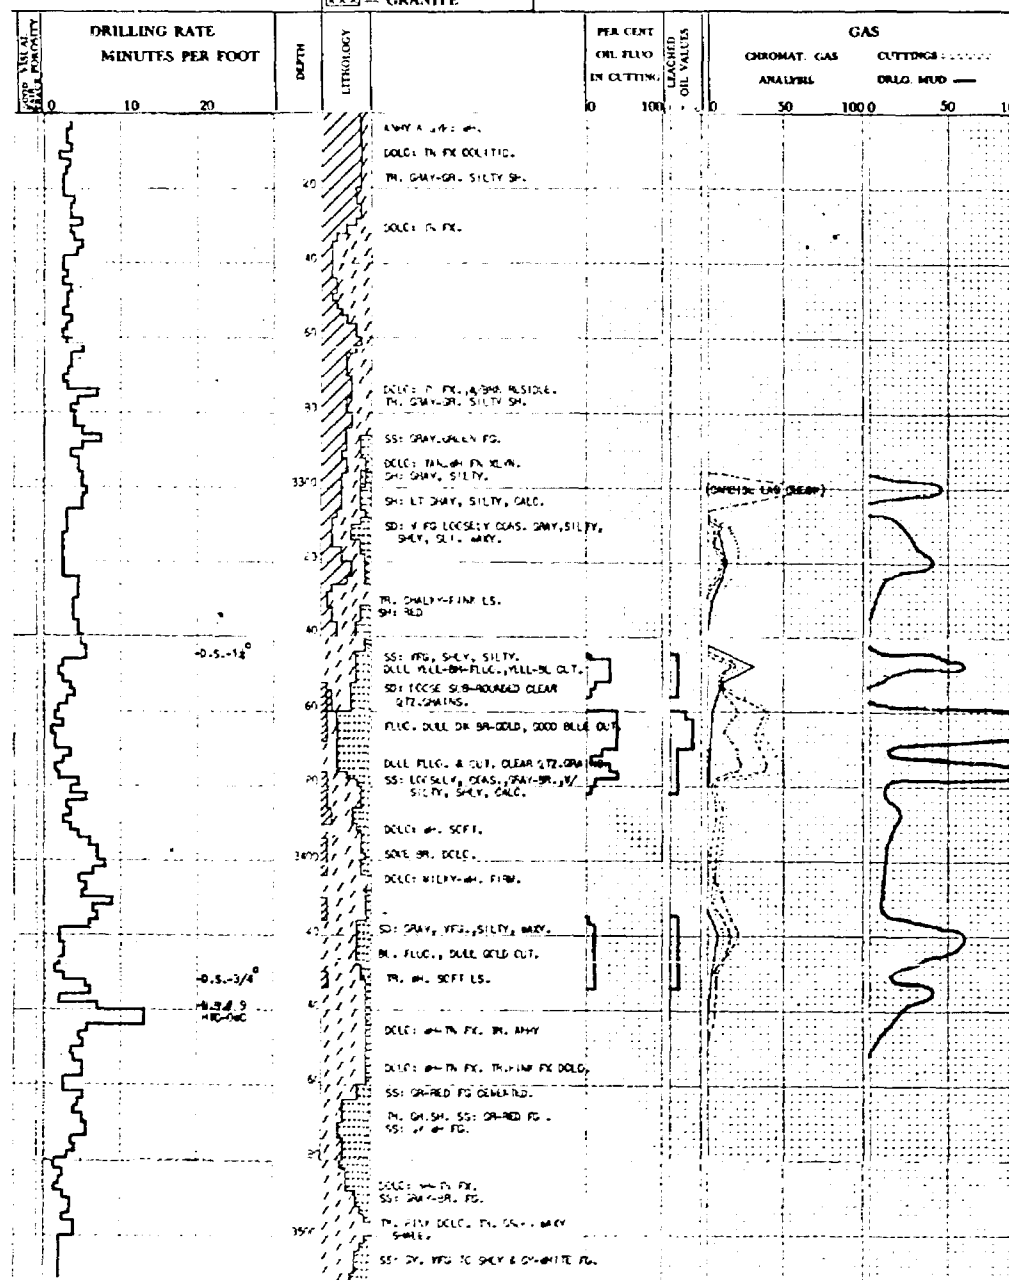 GRANITE
DRILLING RATE
MINUTES PER FOOT
0 10 20
DEPTH
LITHOLOGY
PER CENT
OIL FLUO
IN CUTTING
0 100
LEACHED
OIL VALUES
GAS
CHROMAT. GAS
ANALYSIS
0 50 100
CUTTINGS
DRLG. MUD
0 50
DOLO: TN FX OOLITIC.
20
TR. GRAY-GR. SILTY SH.
DOLO: TN FX.
40
60
TR. GRAY-GR. SILTY SH.
SS: GRAY-GREEN FG.
DOLO: TAN-WH FN XLYN.
SH: GRAY, SILTY.
3300
SH: LT GRAY, SILTY, CALC.
SD: V FG LOOSELY CONS. GRAY, SILTY,
SHLY, SLI. WAXY.
TR. CHALKY-PINK LS.
SH: RED
40
-D.S.-1¼°
SS: VFG, SHLY, SILTY.
DULL YELL-BR-FLUO., YELL-BL CUT.
SD: LOOSE SUB-ROUNDED CLEAR
QTZ.GRAINS.
60
FLUO. DULL DK BR-GOLD, GOOD BLUE CUT
DULL FLUO. & CUT. CLEAR QTZ.GRAINS.
SS: LOOSELY, CONS., GRAY-BR., W/
SILTY, SHLY, CALC.
DOLO: WH. SOFT.
3400
SOME BR. DOLO.
DOLO: MILKY-WH. FIRM.
SD: GRAY, VFG., SILTY, WAXY.
BL. FLUO., DULL GOLD CUT.
TR. WH. SOFT LS.
-D.S.-3/4°
40
DOLO: WH-TN FX. TR. ANHY
DOLO: WH-TN FX. TR.PINK FX DOLO.
60
SS: GR-RED FG CEMENTED.
TR. GR.SH. SS: GR-RED FG.
DOLO: WH-TN FX.
SS: GRAY-BR. FG.
3500
SHALE.
SS: GY. VFG TO SHLY & GY-WHITE FG.